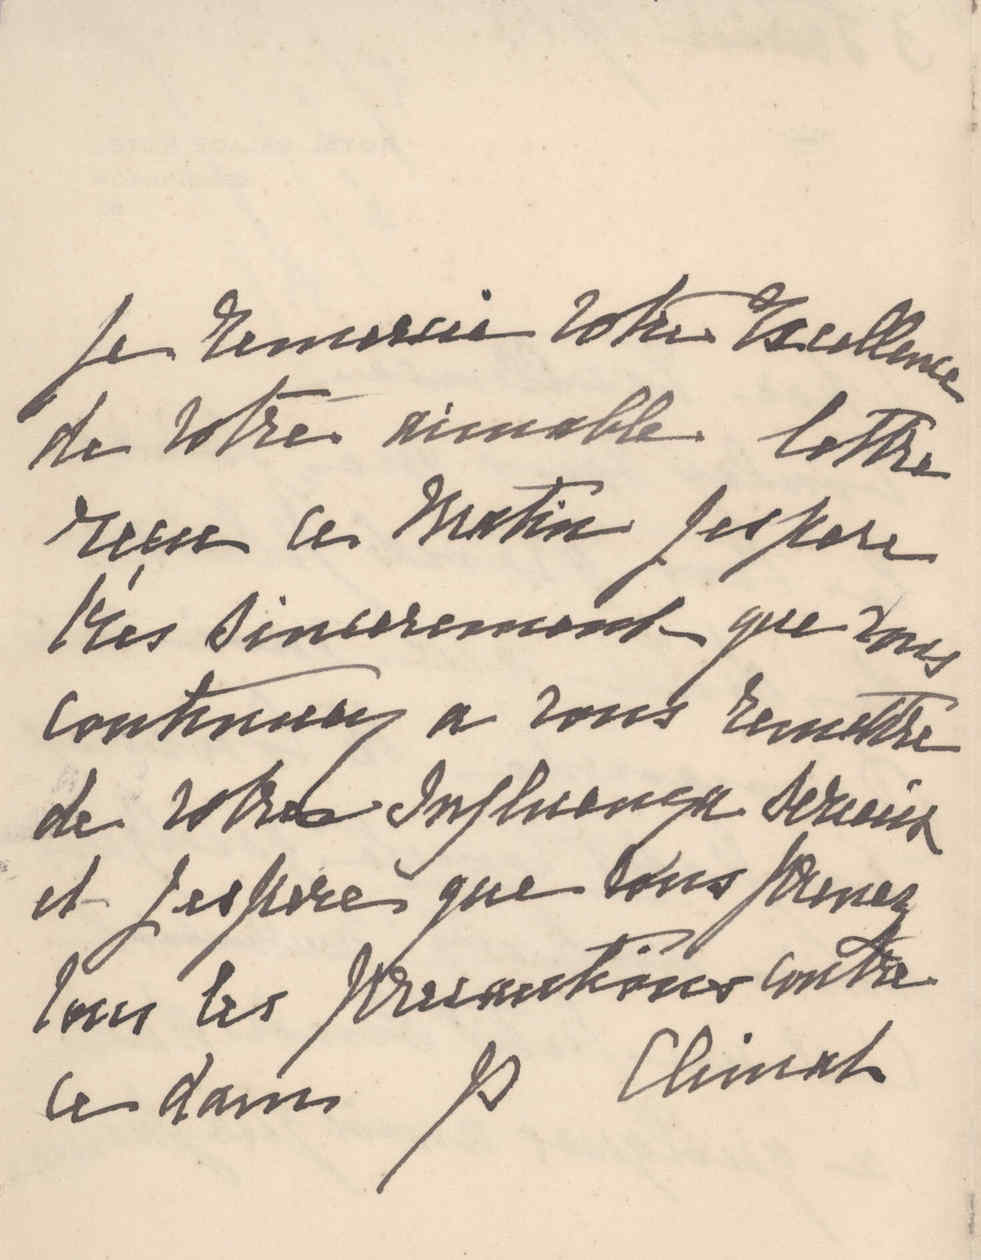 Je remercie votre Excellence
de votre aimable lettre
recue ce Matin Jespere
trés sincerement que vous
continuez a vous remettre
de votre Influenza
et Jespere que vous prenez
tous les precautions contre
ce dam Climat